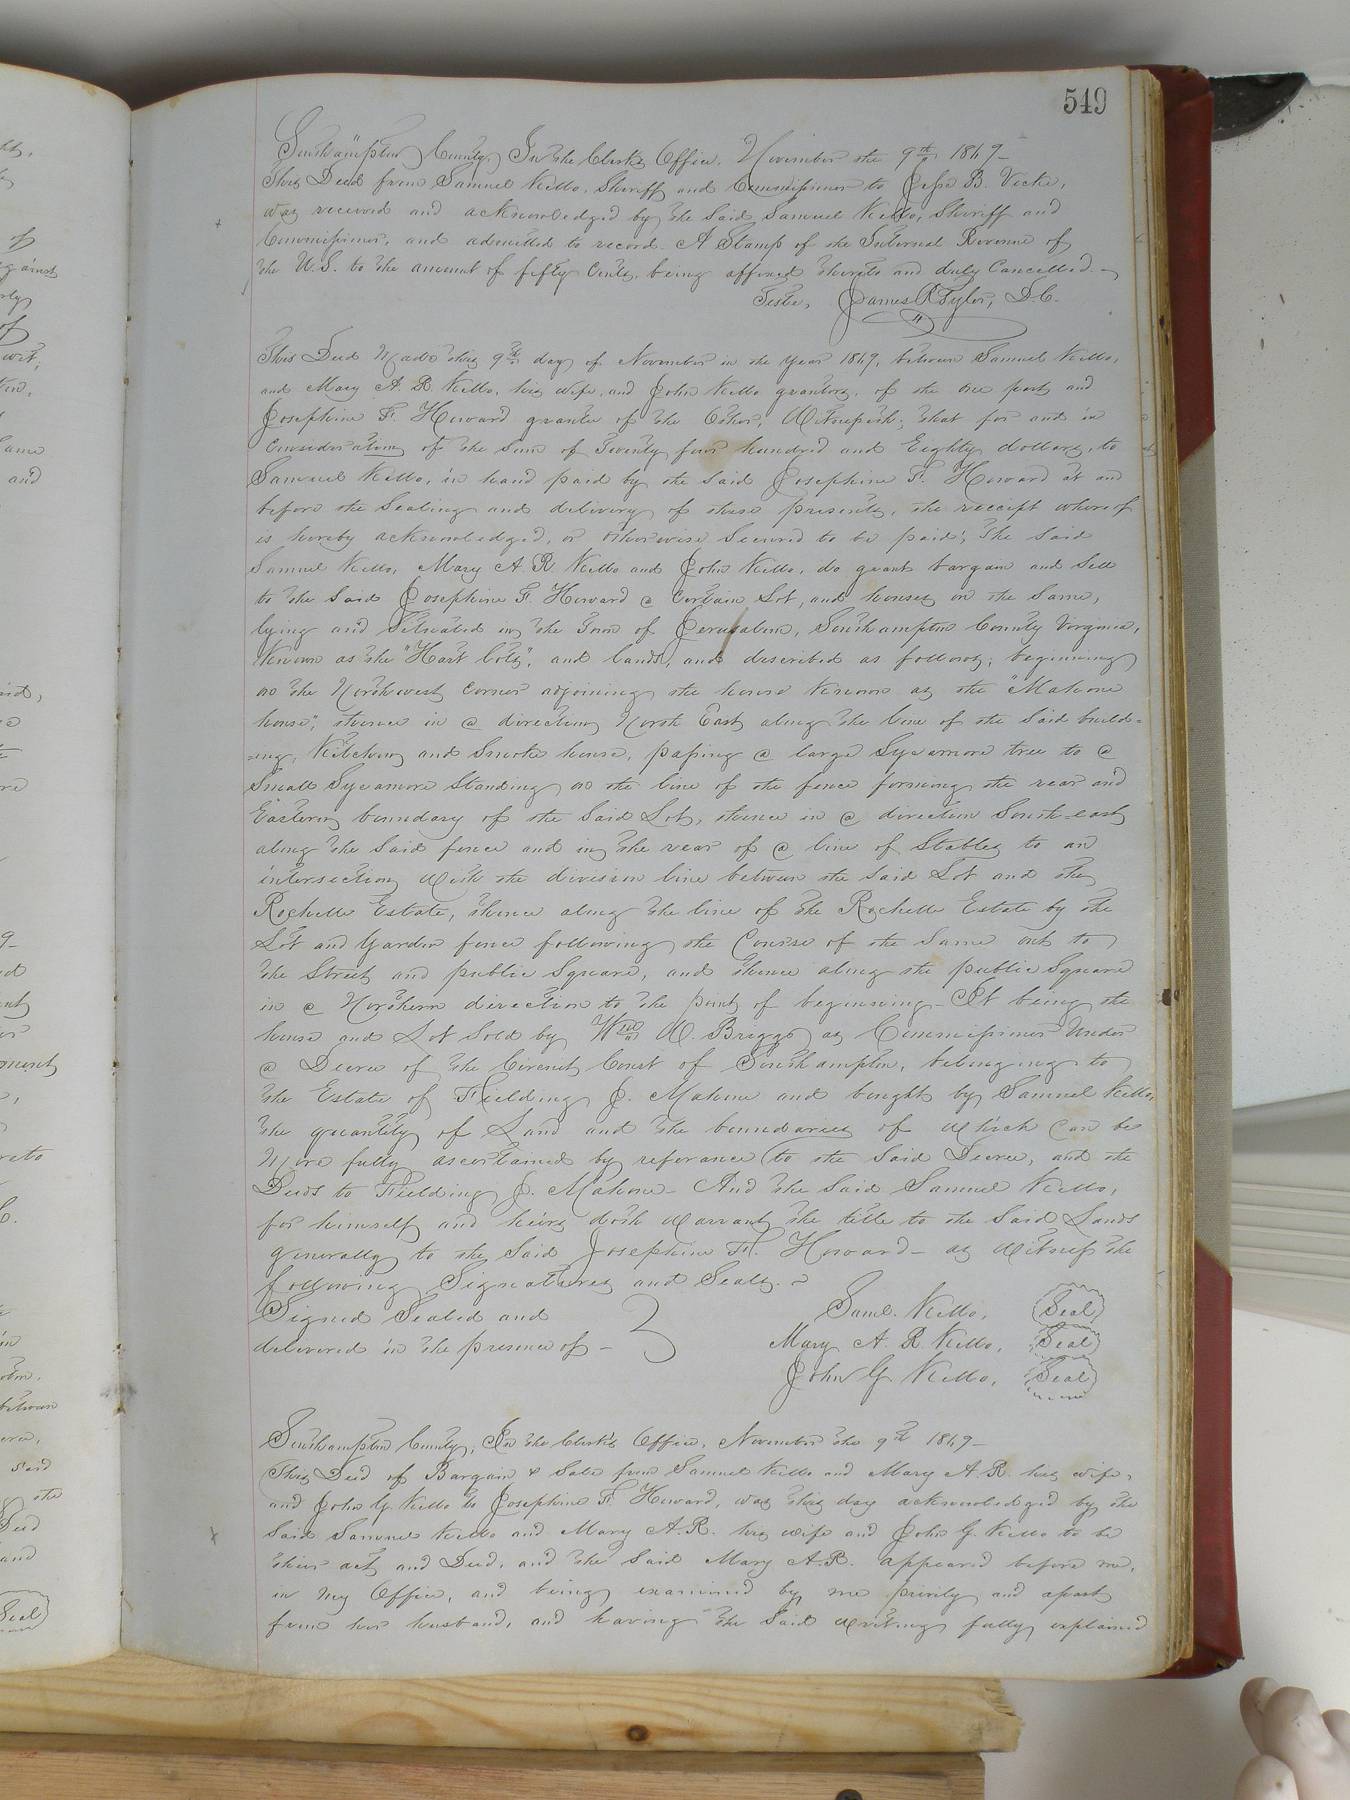 549
Southampton County, In the Clerk's Office, November the 9th 1869—
This Deed from Samuel Kello, Sheriff and Commissioner to Jesse B. Vick,
was received and acknowledged by the said Samuel Kello, Sheriff and
Commissioner, and admitted to record. A Stamp of the Internal Revenue of
the U.S. to the amount of fifty Cents, being affixed thereto and duly Cancelled.—
Teste, James R Tyler, D.C.
This Deed Made this 9th day of November in the year 1869, between Samuel Kello,
and Mary A. R. Kello, his wife, and John Kello grantors, of the one part and
Josephine F. Howard grantee of the Other, Witnesseth; that for and in
Consideration of the Sum of Twenty four hundred and Eighty dollars, to
Samuel Kello, in hand paid by the said Josephine F. Howard at and
before the Sealing and delivery of these presents, the receipt whereof
is hereby acknowledged, or otherwise Secured to be paid; The said
Samuel Kello, Mary A. R. Kello and John Kello, do grant bargain and Sell
to the Said Josephine F. Howard a Certain Lot, and houses on the Same,
lying and Situated in the Town of Jerusalem, Southampton County Virginia,
Known as the "Hart Lots", and lands, and described as follows; beginning
as the Northwest Corner adjoining the house Known as the "Mahone
house", thence in a direction North East along the line of the Said build-
-ing, Kitchen and Smoke house, passing a large Sycamore tree to a
Small Sycamore Standing on the line of the fence forming the rear and
Eastern boundary of the Said Lot, thence in a direction South-east
along the Said fence and in the rear of a line of Stables to an
intersection with the division line between the Said Lot and the
Rochelle Estate, thence along the line of the Rochelle Estate by the
Lot and Garden fence following the Course of the Same out to
the Street and public Square, and thence along the public Square
in a Northern direction to the point of beginning. It being the
house and Lot Sold by Wm W. Briggs as Commissioner Under
a Decree of the Circuit Court of Southampton, belonging to
the Estate of Fielding J. Mahone and bought by Samuel Kello,
the quantity of Land and the boundaries of Which Can be
More fully ascertained by referance to the Said Decree, and the
Deeds to Fielding J. Mahone— And the Said Samuel Kello,
for himself and heirs doth Warrant the title to the Said Lands
generally to the Said Josephine F. Howard— as Witness the
following Signatures and Seals.—
Signed Sealed and
delivered in the presence of—
Saml. Kello, Seal
Mary A. R. Kello, Seal
John G. Kello, Seal
Southampton County, In the Clerk's Office, November the 9th 1869—
This Deed of Bargain & Sale from Samuel Kello and Mary A. R. his wife,
and John G. Kello to Josephine F. Howard, was this day acknowledged by the
Said Samuel Kello and Mary A. R. his wife and John G. Kello to be
their act and Deed, and the Said Mary A. R. appeared before me,
in my Office, and being examined by me privily and apart
from her husband, and having the Said Writing fully explained